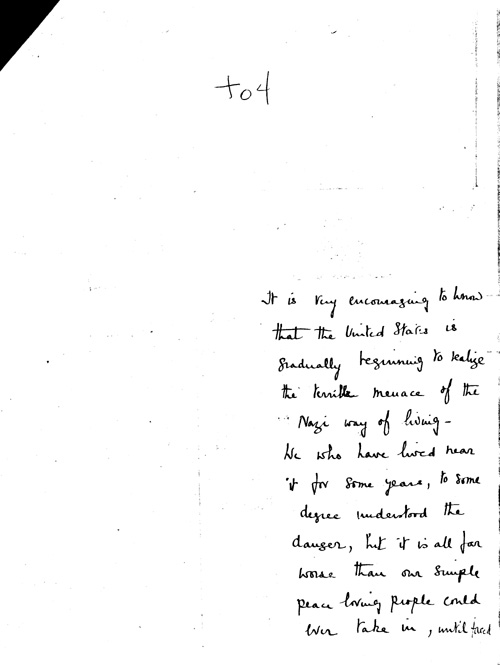 to 4
It is very encouraging to know
that the United States is
gradually beginning to realize
the terrible menace of the
Nazi way of living -
We who have lived near
it for some years, to some
degree understood the
danger, but it is all far
worse than our simple
peace loving people could
ever take in, until faced